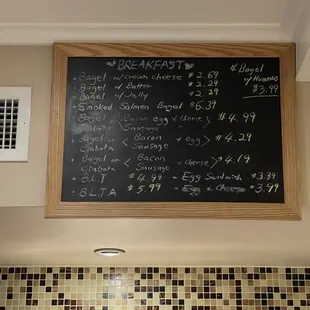 BREAKFAST
Bagel w/ cream cheese $2.69
Bagel w/ Butter $2.29
Bagel w/ Jelly $2.29
Smoked Salmon Bagel $6.39
Bagel or Ciabata < Bacon egg & Cheese Sausage > $4.99
Bagel or Ciabata < Bacon Sausage & egg > $4.29
Bagel or Ciabata < Bacon Sausage & cheese > $4.19
B.L.T $4.99
B.L.T.A $5.99
Egg Sandwich $3.39
Egg & Cheese $3.99
* Bagel
w/ Hummus
$3.99